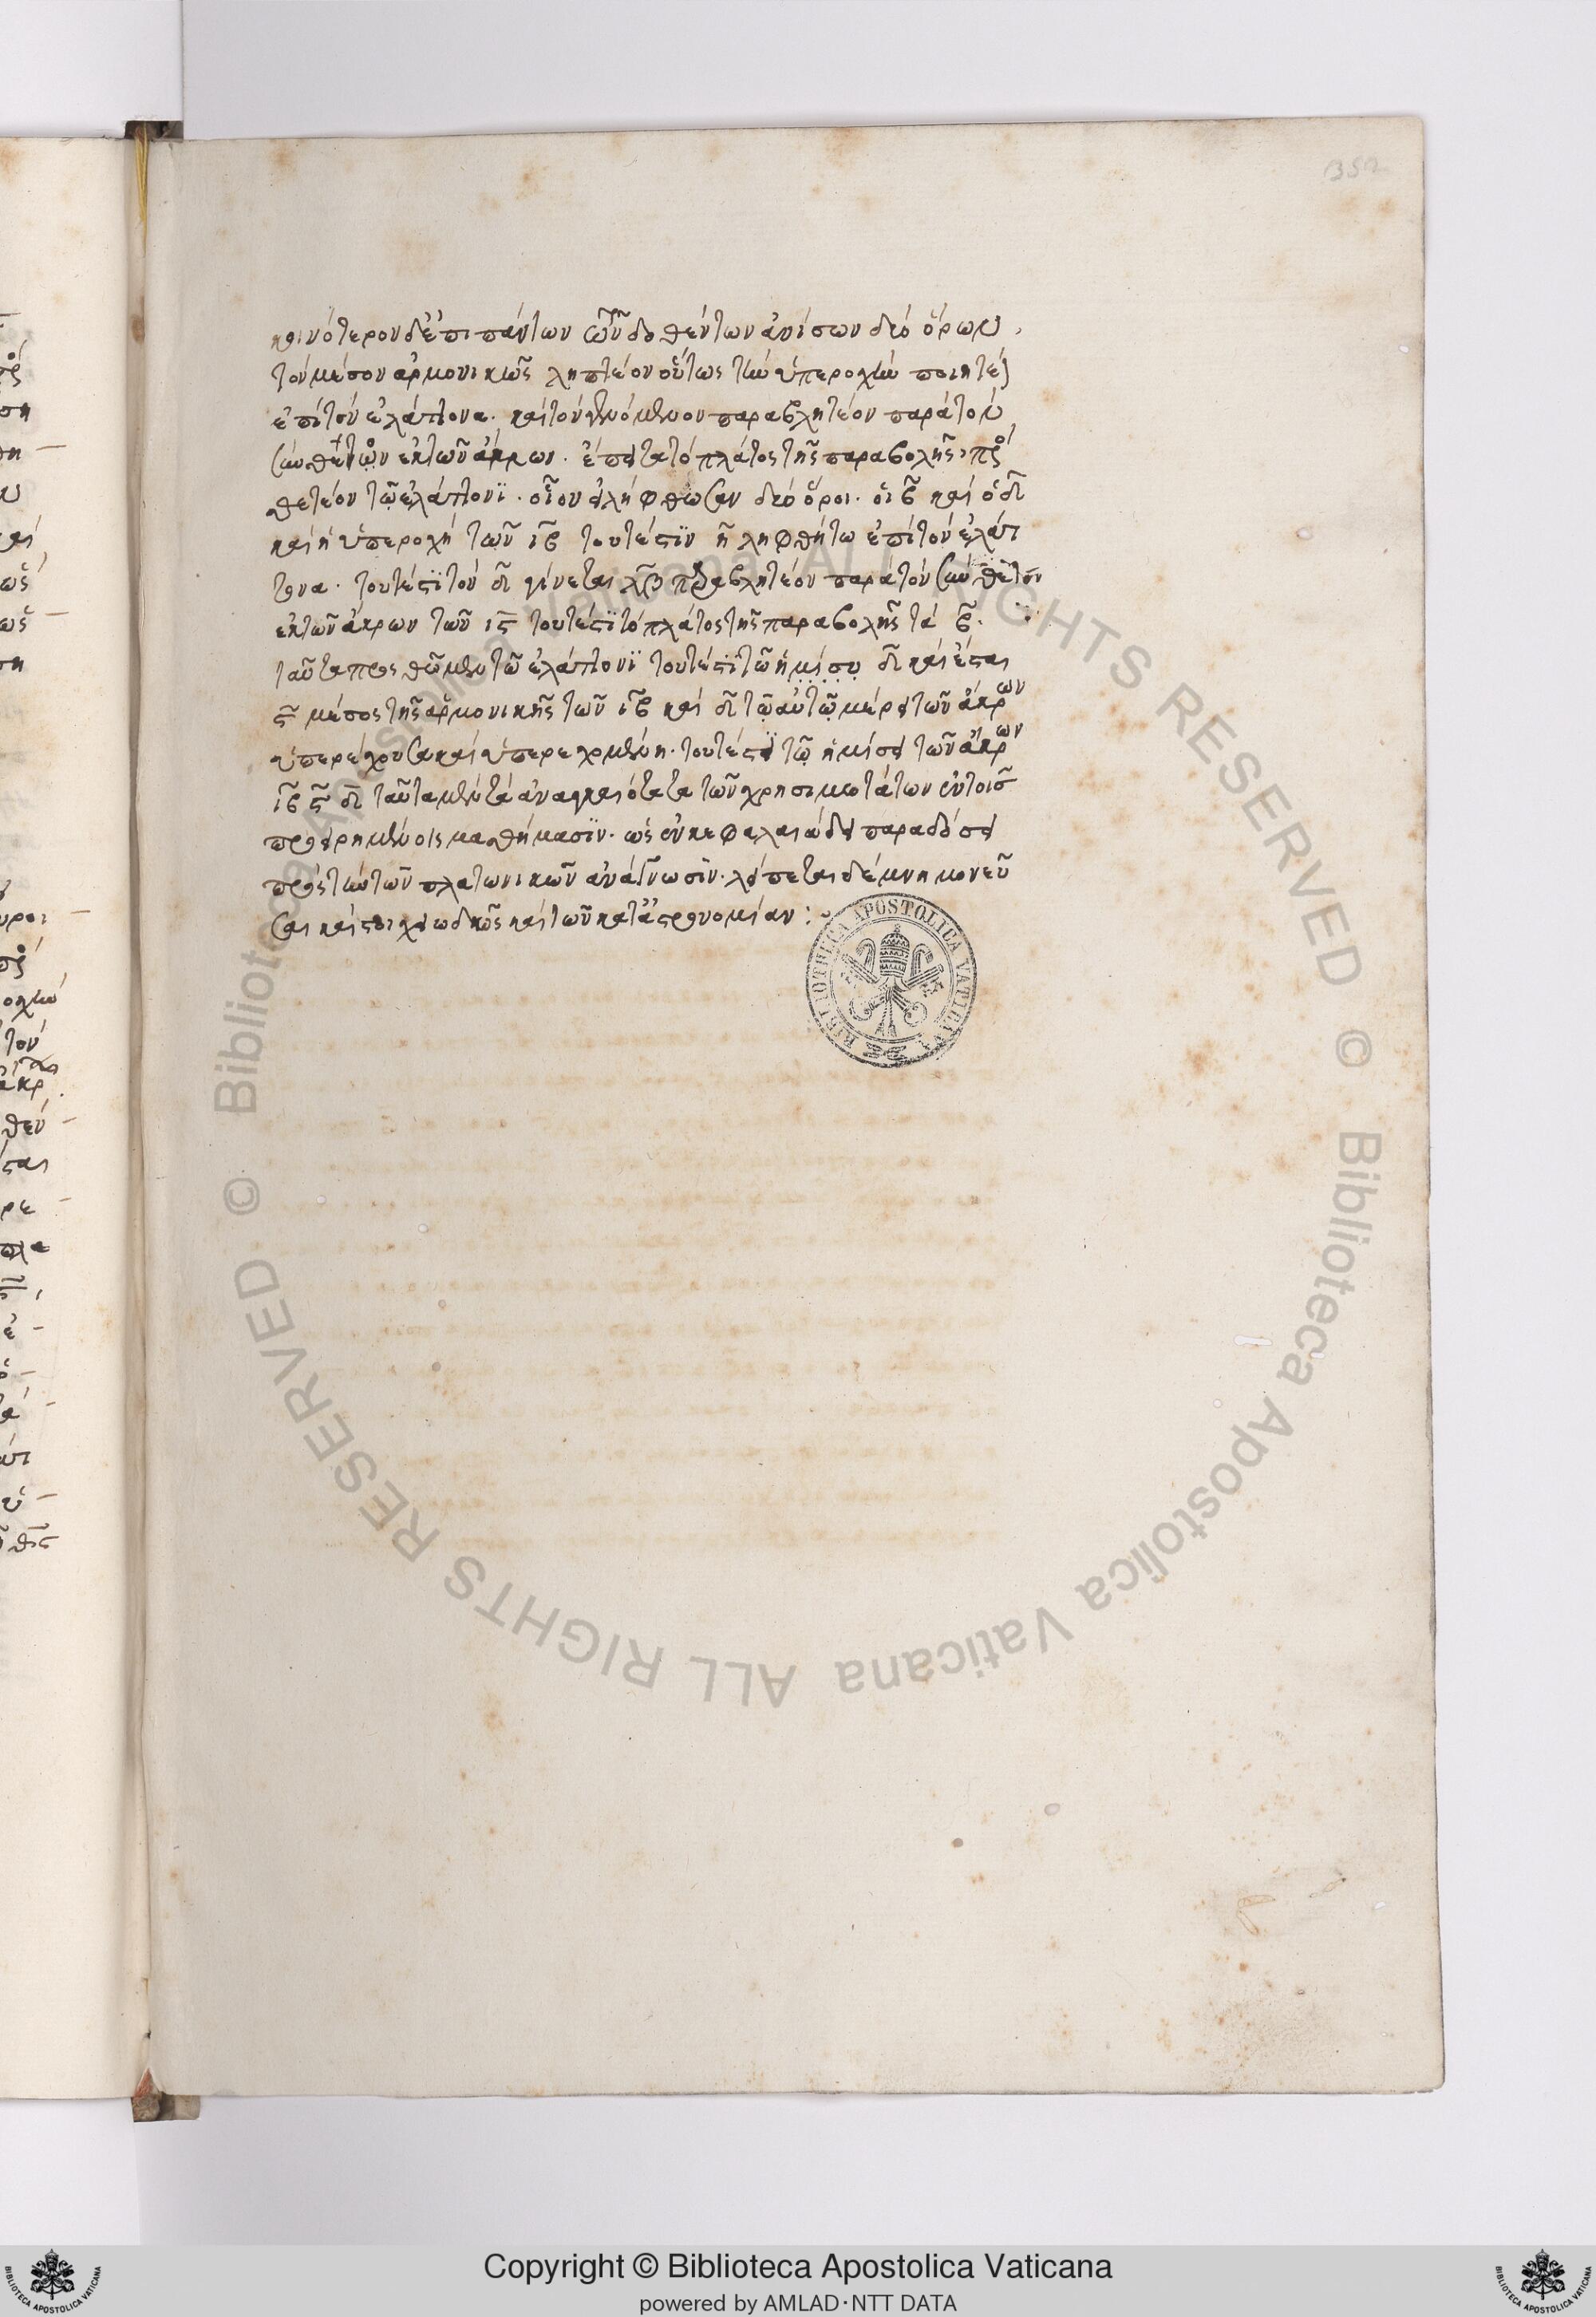 κοινότερον δ' ἐπι πάντων τῶν δοθέντων ἀνίσων δύο ὅρων,
τὸν μέσον ἁρμονικῶς ληπτέον οὕτως τὴν ὑπεροχὴν ποιητέ
ἐπὶ τὸν ἐλάττονα· καὶ τὸν γενόμενον παραβλητέον παρὰ τὸν
συνθέτον ἐκ τῶν ἄκρων· ἔπειτα τὸ πλάτος τῆς παραβολῆς, προσ
θετέον τῷ ἐλάττονι· οἷον εἰλήφθωσαν δύο ὅροι· ὁ ιβ καὶ ὁ δ
καὶ ἡ ὑπεροχὴ τῶν ιβ τουτέστιν η ληφθήτω ἐπὶ τὸν ἐλάτ
τονα· τουτέστι τὸν δ γίνεται λβ παραβλητέον παρὰ τὸν συνθέτον
ἐκ τῶν ἄκρων τῶν ις τουτέστι τὸ πλάτος τῆς παραβολῆς τὰ β·
ταῦτα προσθῶμεν τῷ ἐλάττονι τουτέστι τῷ ἡμίσυ δ καὶ ἔσται
ς μέσος τῆς ἁρμονικῆς τῶν ιβ καὶ δ τῷ αὐτῷ μέρει τῶν ἄκρων
ὑπερέχουσα καὶ ὑπερεχομένη· τουτέστι τῷ ἡμίσει τῶν ἄκρων
ιβ ς δ ταῦτα μὲν τὰ ἀναγκαιότατα τῶν χρησιμωτάτων ἐν τοῖς
προειρημένοις μαθήμασιν· ὡς ἐν κεφαλαιώδει παραδόσει
πρὸς τὴν τῶν πλατωνικῶν ἀνάγνωσιν· λείπεται δὲ μνημονεῦ
σαι καὶ στοιχειωδῶς καὶ τῶν κατ' ἀστρονομίαν :~
BIBLIOTHECA APOSTOLICA VATICANA
© Biblioteca Apostolica Vaticana ALL RIGHTS RESERVED
© Biblioteca Apostolica Vaticana ALL RIGHTS RESERVED
Copyright © Biblioteca Apostolica Vaticana
powered by AMLAD·NTT DATA